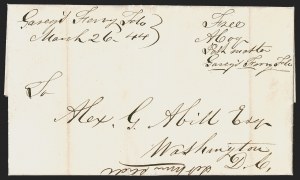 Garey's Ferry Flo
March 26 - 44
Free
A Coy
Post master
Garey's Ferry Flo
To
Alex. G. Abill Esq
Washington
D. C.